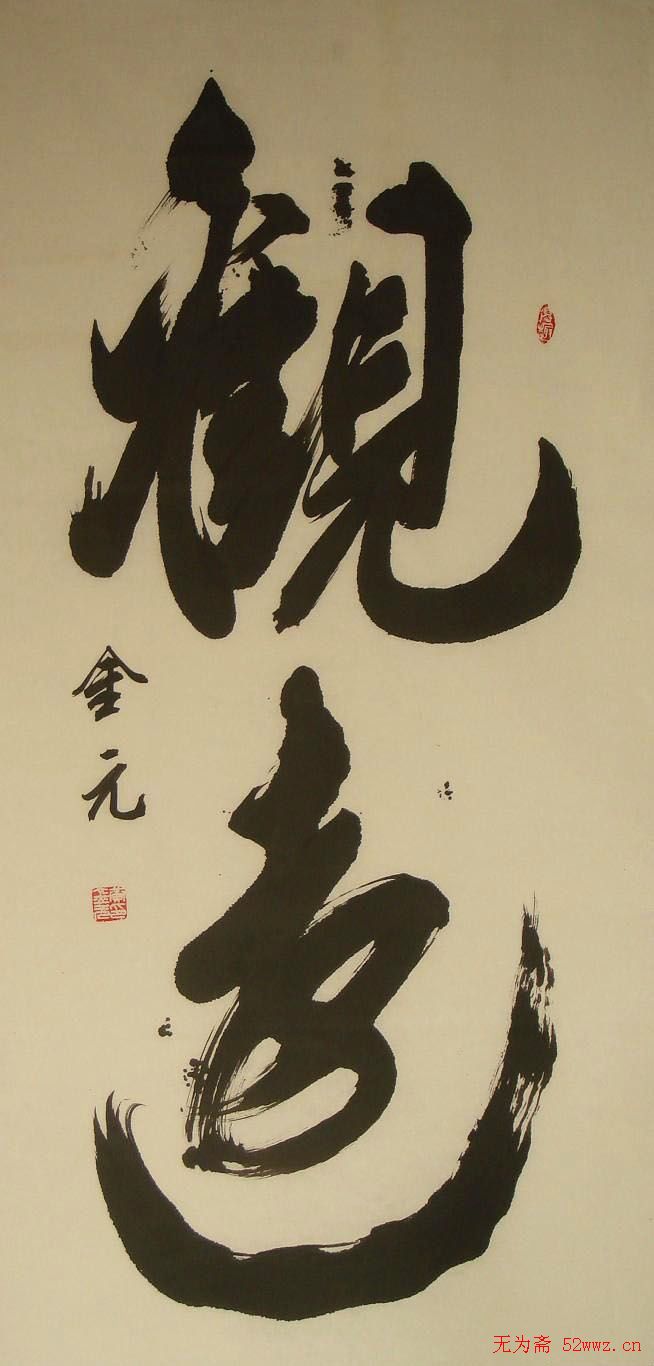 觀遠
金元
无为斋 52wwz.cn